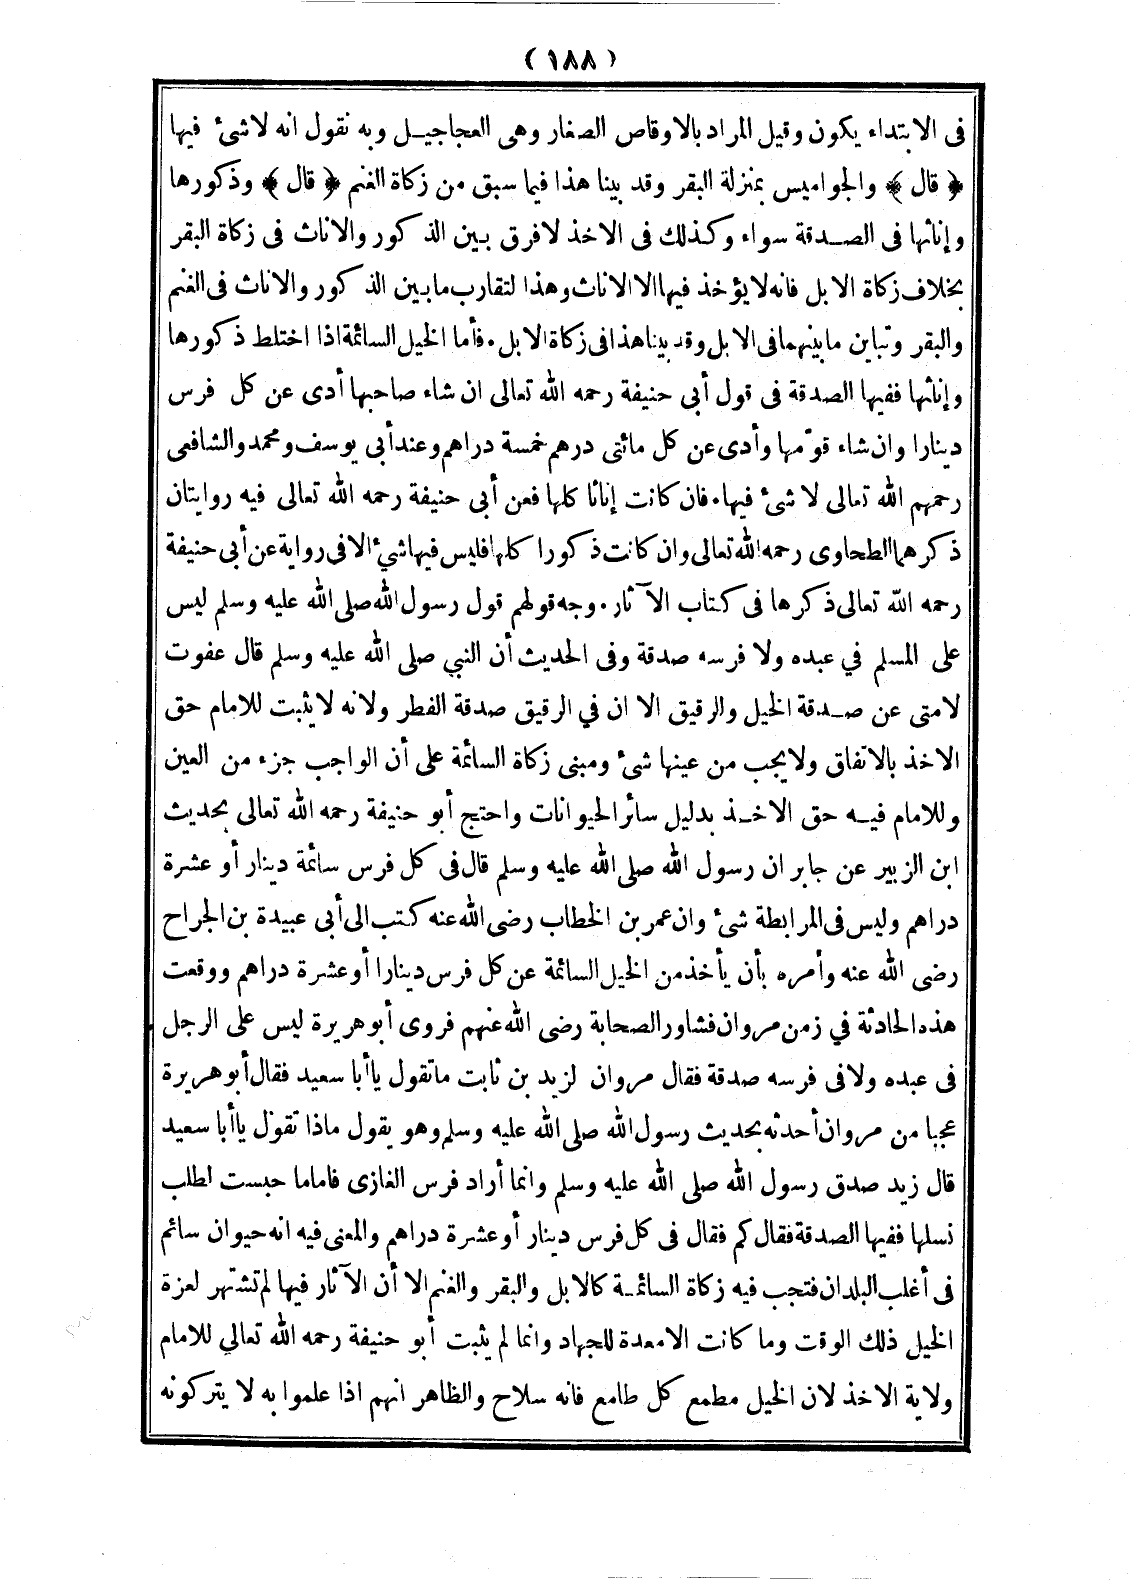 (١٨٨)
فى الابتداء يكون وقيل المراد بالاوقاص الصغار وهى العجاجيل وبه نقول انه لا شئ فيها
﴿ قال ﴾ والجواميس بمنزلة البقر وقد بينا هذا فيما سبق من زكاة الغنم ﴿ قال ﴾ وذكورها
وإناثها فى الصدقة سواء وكذلك فى الاخذ لا فرق بين الذكور والاناث فى زكاة البقر
بخلاف زكاة الابل فانه لا يؤخذ فيها الا الاناث وهذا لتقارب ما بين الذكور والاناث فى الغنم
والبقر وتباين ما بينهما فى الابل وقد بينا هذا فى زكاة الابل . فأما الخيل السائمة اذا اختلط ذكورها
وإناثها ففيها الصدقة فى قول أبى حنيفة رحمه الله تعالى ان شاء صاحبها أدى عن كل فرس
دينارا وان شاء قوّمها وأدى عن كل مائتى درهم خمسة دراهم وعند أبى يوسف ومحمد والشافعى
رحمهم الله تعالى لا شئ فيها . فان كانت إناثا كلها فعن أبى حنيفة رحمه الله تعالى فيه روايتان
ذكرهما الطحاوى رحمه الله تعالى وان كانت ذكورا كلها فليس فيها شئ الا فى رواية عن أبى حنيفة
رحمه الله تعالى ذكرها فى كتاب الآثار . وجه قولهم قول رسول الله صلى الله عليه وسلم ليس
على المسلم في عبده ولا فرسه صدقة وفى الحديث أن النبي صلى الله عليه وسلم قال عفوت
لامتى عن صدقة الخيل والرقيق الا ان في الرقيق صدقة الفطر ولانه لا يثبت للامام حق
الاخذ بالاتفاق ولا يجب من عينها شئ ومبنى زكاة السائمة على أن الواجب جزء من العين
وللامام فيه حق الاخذ بدليل سائر الحيوانات واحتج أبو حنيفة رحمه الله تعالى بحديث
ابن الزبير عن جابر ان رسول الله صلى الله عليه وسلم قال فى كل فرس سائمة دينار أو عشرة
دراهم وليس فى المرابطة شئ وان عمر بن الخطاب رضى الله عنه كتب الى أبى عبيدة بن الجراح
رضى الله عنه وأمره بأن يأخذ من الخيل السائمة عن كل فرس دينارا أو عشرة دراهم ووقعت
هذه الحادثة في زمن مروان فشاور الصحابة رضى الله عنهم فروى أبو هريرة ليس على الرجل
فى عبده ولا فى فرسه صدقة فقال مروان لزيد بن ثابت ما تقول يا أبا سعيد فقال أبو هريرة
عجبا من مروان أحدثه بحديث رسول الله صلى الله عليه وسلم وهو يقول ماذا تقول يا أبا سعيد
قال زيد صدق رسول الله صلى الله عليه وسلم وانما أراد فرس الغازى فاما ما حبست لطلب
نسلها ففيها الصدقة فقال كم فقال فى كل فرس دينار أو عشرة دراهم والمعنى فيه انه حيوان سائم
فى أغلب البلدان فتجب فيه زكاة السائمة كالابل والبقر والغنم الا أن الآثار فيها لم تشتهر لعزة
الخيل ذلك الوقت وما كانت الا معدة للجهاد وانما لم يثبت أبو حنيفة رحمه الله تعالي للامام
ولاية الاخذ لان الخيل مطمع كل طامع فانه سلاح والظاهر انهم اذا علموا به لا يتركونه